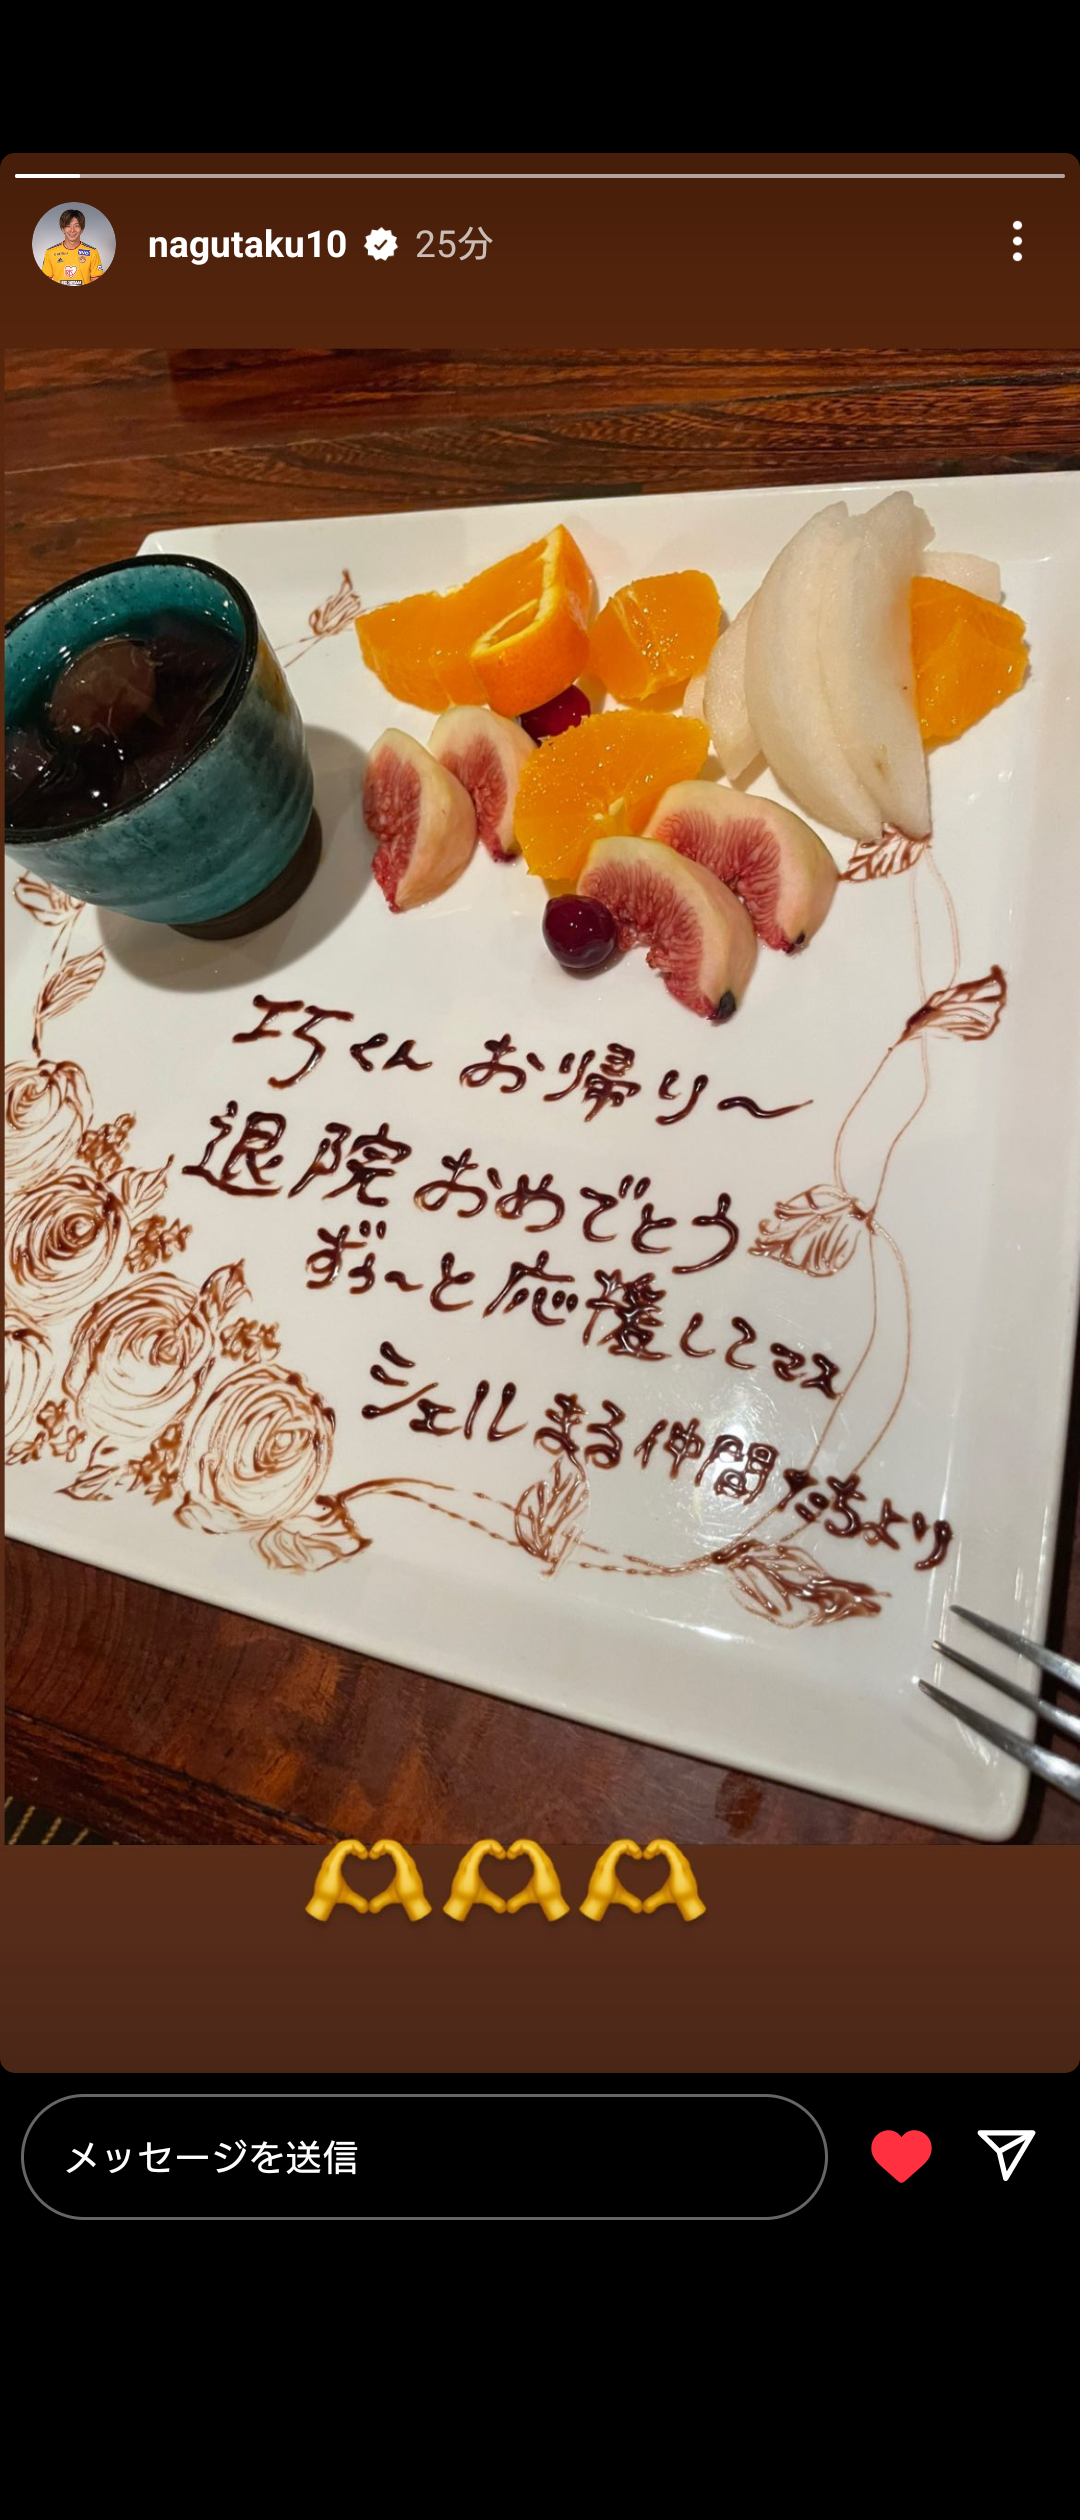 nagutaku10 25分
巧くん お帰り〜
退院おめでとう
ずぅ〜と応援してマス
シェルまる仲間たちより
メッセージを送信